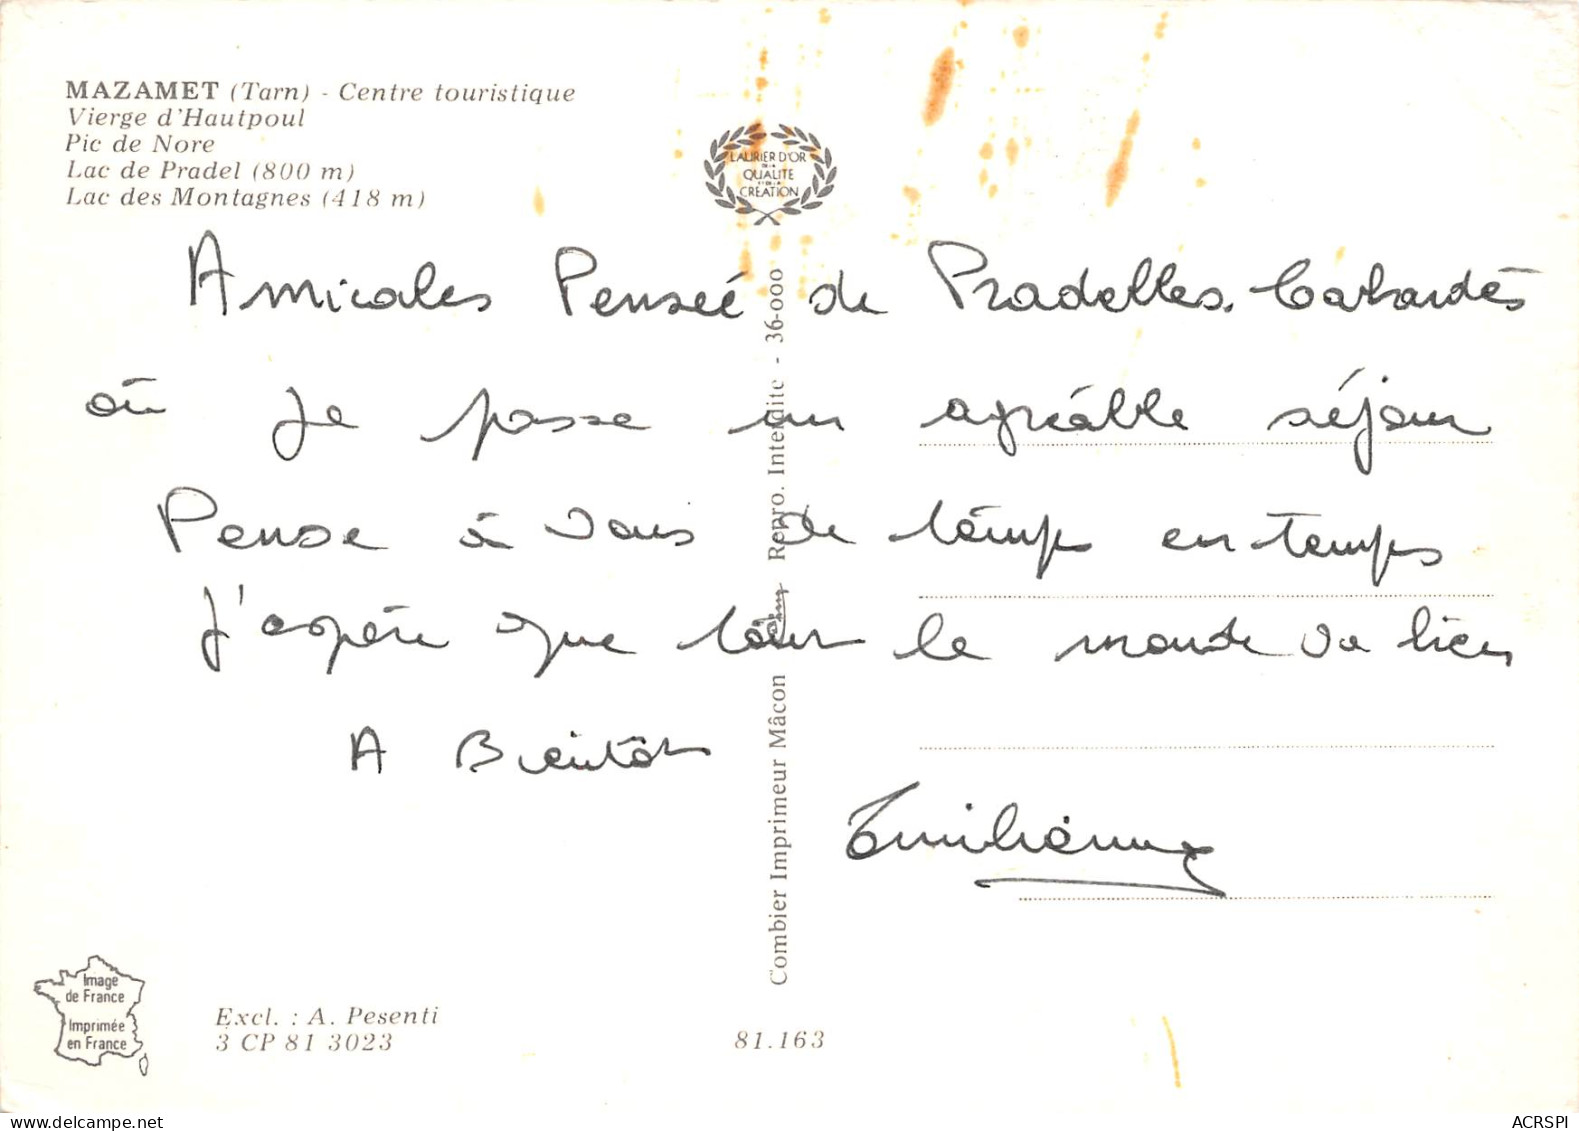 MAZAMET (Tarn) - Centre touristique
Vierge d'Hautpoul
Pic de Nore
Lac de Pradel (800 m)
Lac des Montagnes (418 m)
LAURIER D'OR
DE LA
QUALITE
ET DE LA
CREATION
Amicales Penseé de Pradelles. Cabardès
où Je passe un agréable séjour
Pense à vous de temps en temps
J'espère que tout le monde va bien
A Bientôt
Emilienne
Combier Imprimeur Mâcon Repro. Interdite - 36-000
Image
de France
Imprimée
en France
Excl. : A. Pesenti
3 CP 81 3023
81.163
ACRSPI